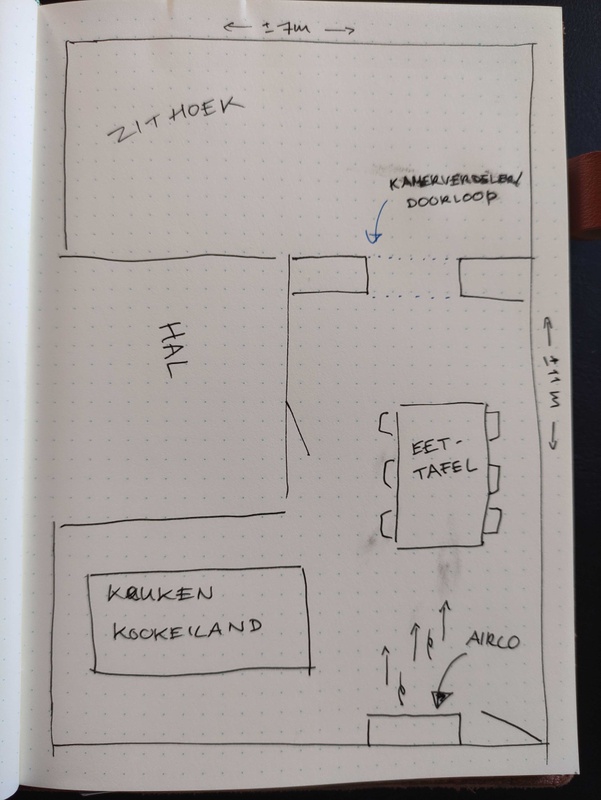 ± 7m
ZITHOEK
KAMERVERDELER/
DOORLOOP
HAL
± 11 m
EET-
TAFEL
KEUKEN
KOOKEILAND
AIRCO